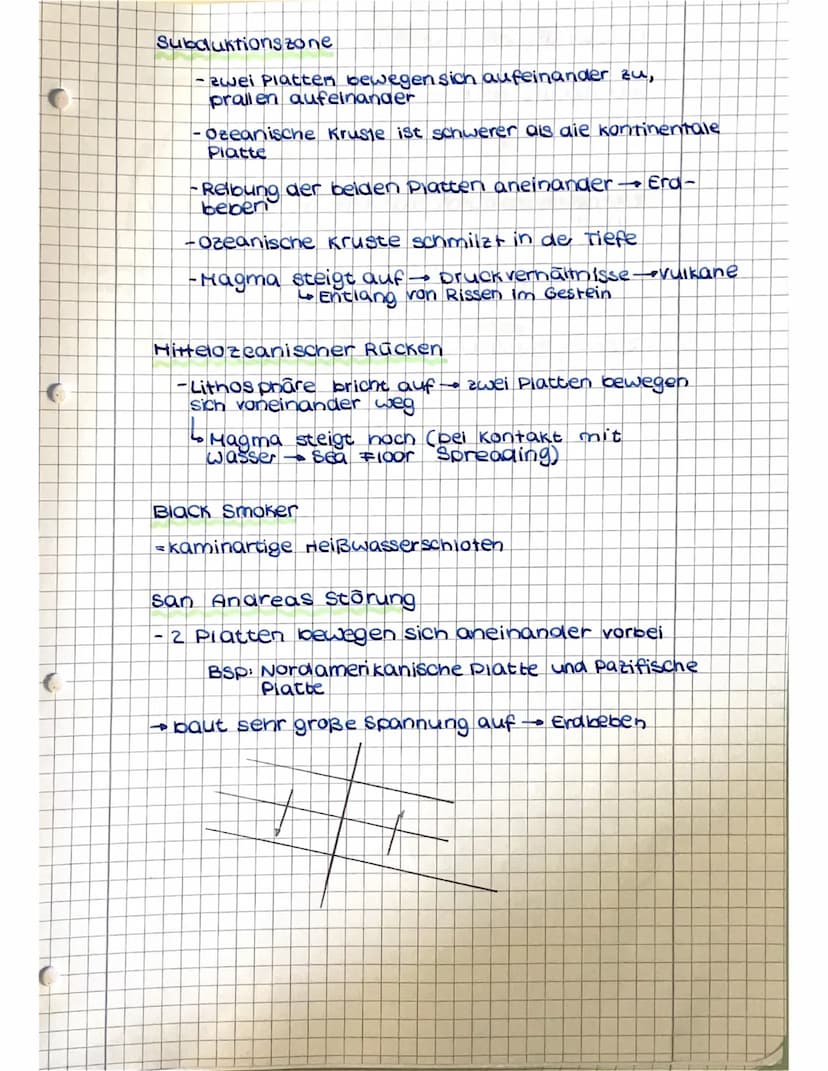 Subduktionszone
- zwei Platten bewegen sich aufeinander zu,
prallen aufeinander
- Ozeanische Kruste ist schwerer als die kontinentale
Platte
- Reibung der beiden Platten aneinander → Erd-
beben
- Ozeanische Kruste schmilzt in der Tiefe
- Magma steigt auf → Druckverhältnisse → Vulkane
↳ Entlang von Rissen im Gestein
Mittelozeanischer Rücken
- Lithosphäre bricht auf → zwei Platten bewegen
sich voneinander weg
↳ Magma steigt hoch (bei Kontakt mit
Wasser → Sea Floor Spreading)
Black Smoker
= kaminartige Heißwasserschloten
San Andreas Störung
- 2 Platten bewegen sich aneinander vorbei
BSP: Nordamerikanische Platte und Pazifische
Platte
→ baut sehr große Spannung auf → Erdbeben